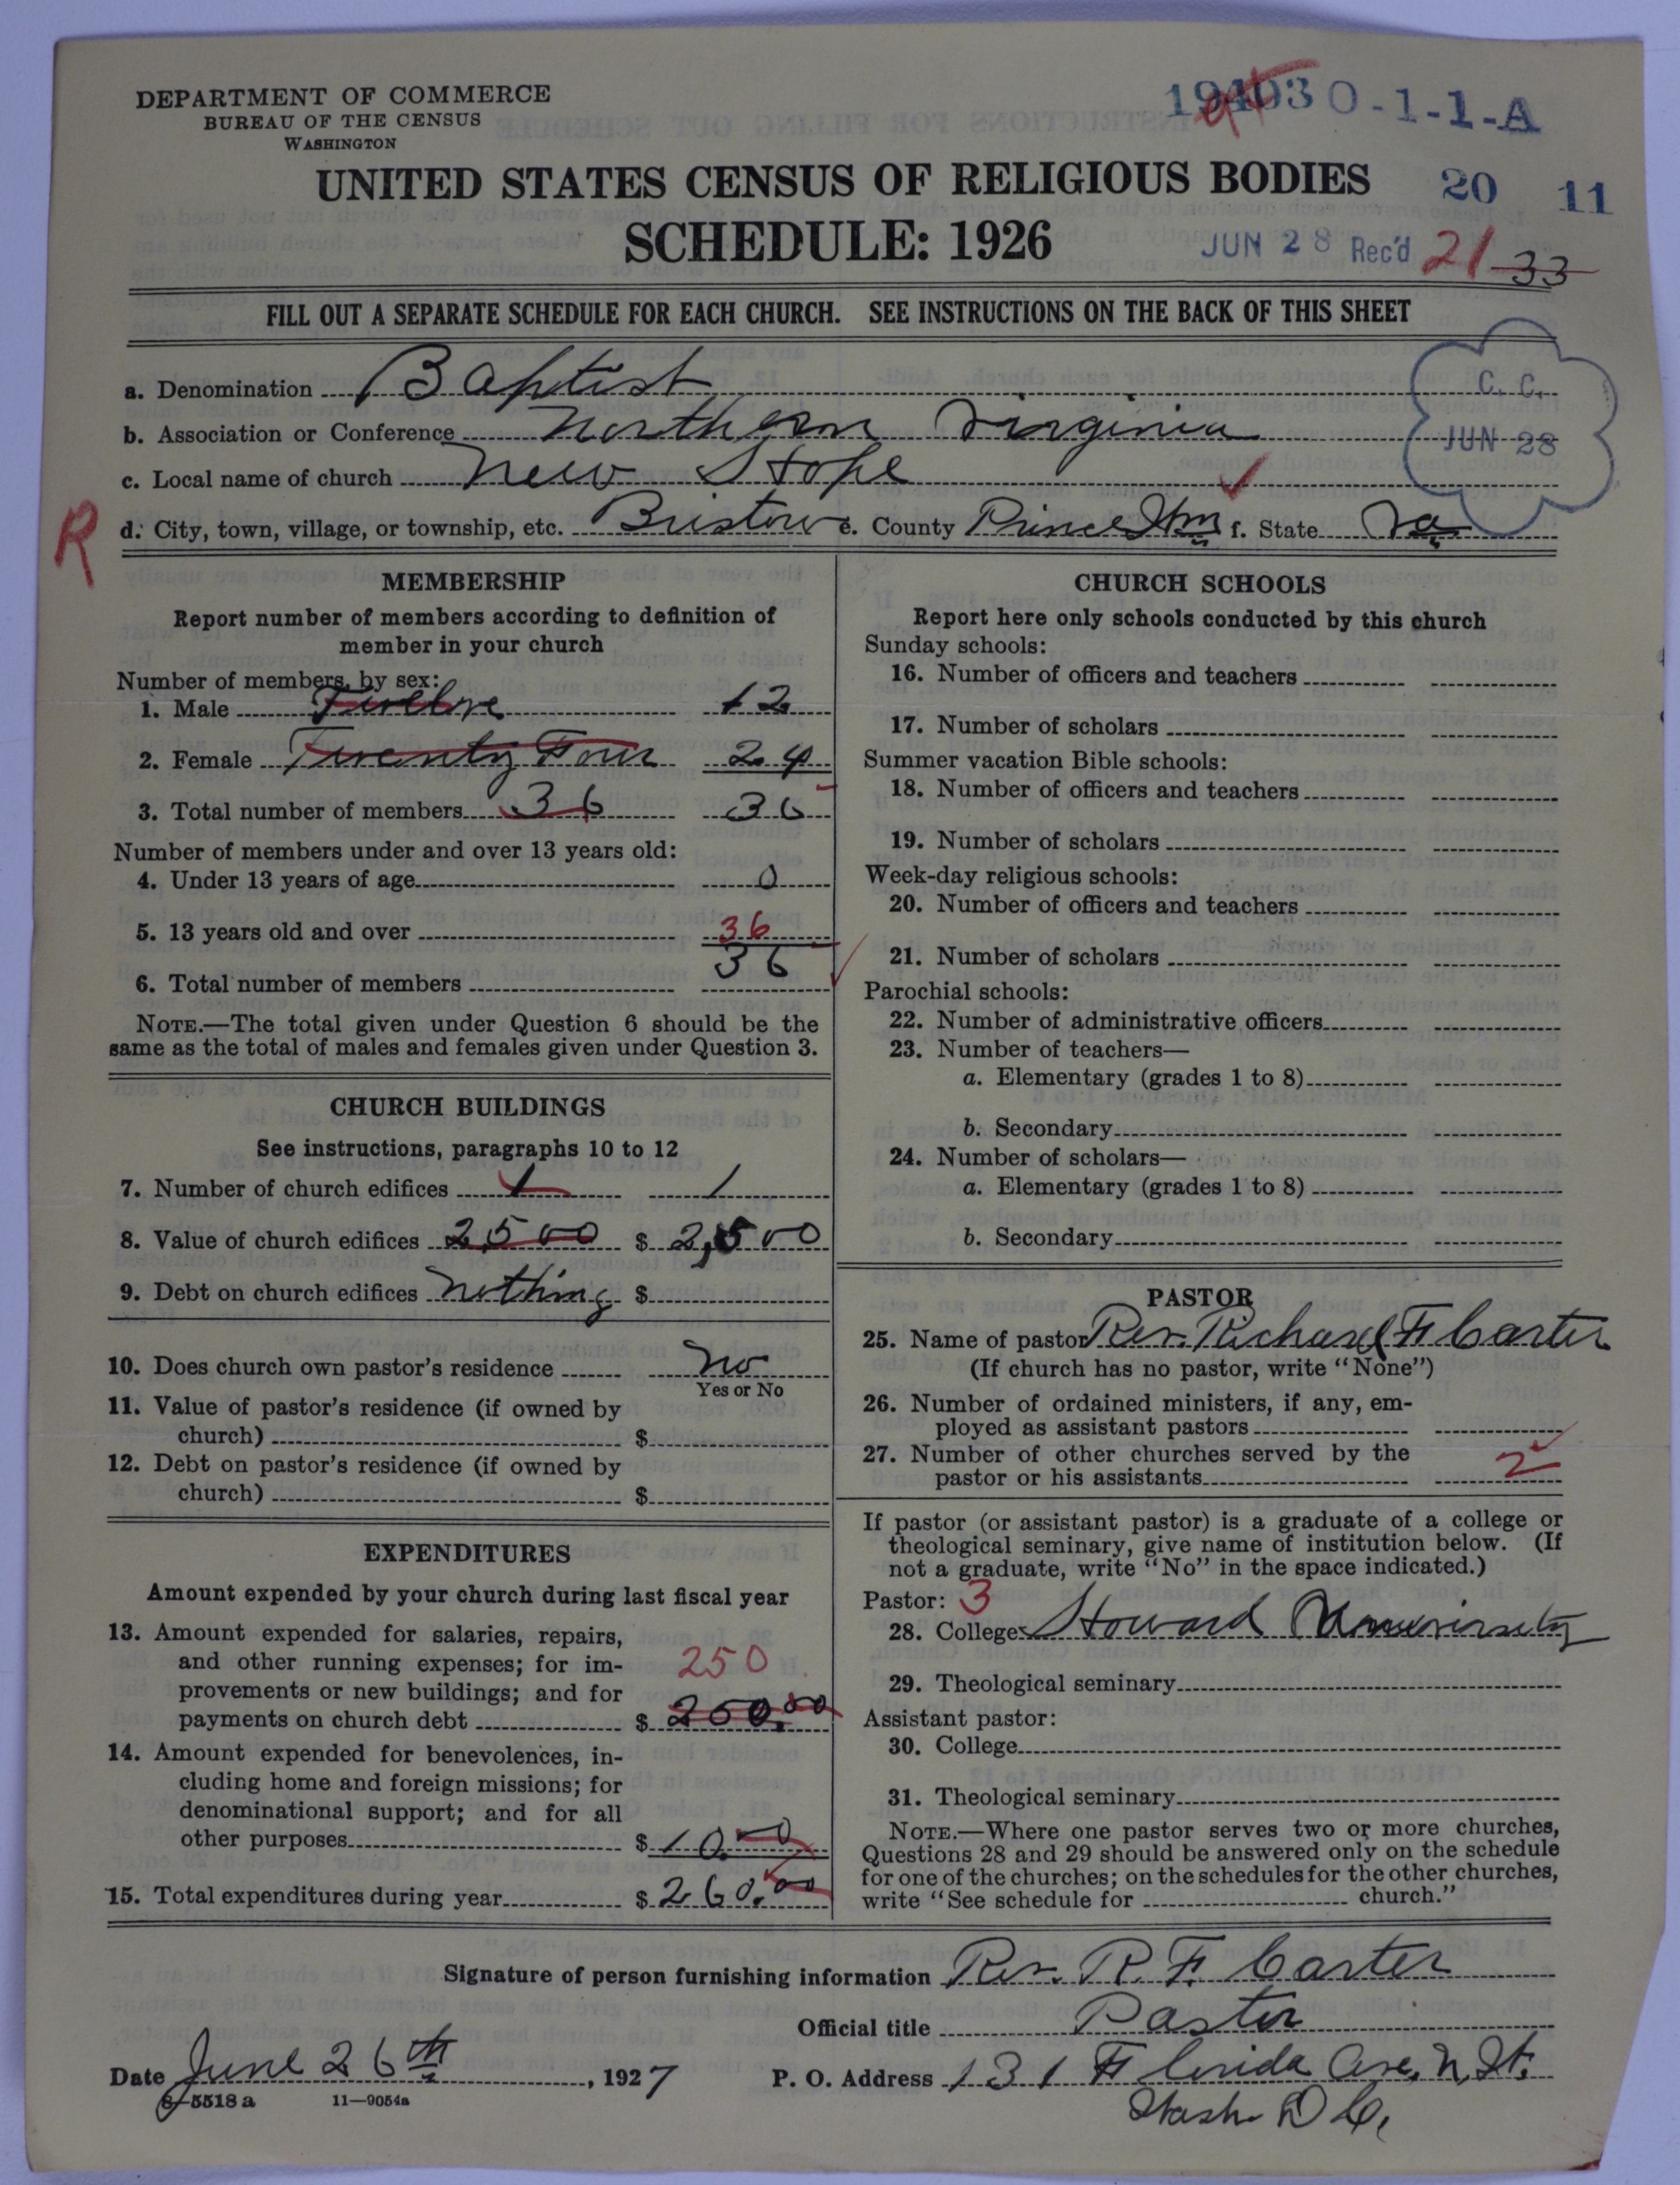 DEPARTMENT OF COMMERCE
BUREAU OF THE CENSUS
WASHINGTON
0-1-1-A
UNITED STATES CENSUS OF RELIGIOUS BODIES
20 11
SCHEDULE: 1926
JUN 28 Rec'd 21 33
FILL OUT A SEPARATE SCHEDULE FOR EACH CHURCH. SEE INSTRUCTIONS ON THE BACK OF THIS SHEET
a. Denomination Baptist
C. C.
b. Association or Conference Northern Virginia
JUN 28
c. Local name of church New Hope
R
d. City, town, village, or township, etc. Bristow e. County Prince Wm f. State Va
MEMBERSHIP
Report number of members according to definition of
member in your church
Number of members, by sex:
1. Male Twelve 12
2. Female Twenty Four 24
3. Total number of members 36 36
Number of members under and over 13 years old:
4. Under 13 years of age 0
5. 13 years old and over 36
6. Total number of members 36
NOTE.—The total given under Question 6 should be the
same as the total of males and females given under Question 3.
CHURCH BUILDINGS
See instructions, paragraphs 10 to 12
7. Number of church edifices 1 1
8. Value of church edifices 2,500 $ 2,500
9. Debt on church edifices nothing $
10. Does church own pastor's residence No
Yes or No
11. Value of pastor's residence (if owned by
church) $
12. Debt on pastor's residence (if owned by
church) $
EXPENDITURES
Amount expended by your church during last fiscal year
13. Amount expended for salaries, repairs,
and other running expenses; for im-
250
provements or new buildings; and for
payments on church debt $ 250.00
14. Amount expended for benevolences, in-
cluding home and foreign missions; for
denominational support; and for all
other purposes $ 10.00
15. Total expenditures during year $ 260.00
CHURCH SCHOOLS
Report here only schools conducted by this church
Sunday schools:
16. Number of officers and teachers
17. Number of scholars
Summer vacation Bible schools:
18. Number of officers and teachers
19. Number of scholars
Week-day religious schools:
20. Number of officers and teachers
21. Number of scholars
Parochial schools:
22. Number of administrative officers
23. Number of teachers—
a. Elementary (grades 1 to 8)
b. Secondary
24. Number of scholars—
a. Elementary (grades 1 to 8)
b. Secondary
PASTOR
25. Name of pastor Rev. Richard F Carter
(If church has no pastor, write "None")
26. Number of ordained ministers, if any, em-
ployed as assistant pastors
27. Number of other churches served by the
pastor or his assistants 2
If pastor (or assistant pastor) is a graduate of a college or
theological seminary, give name of institution below. (If
not a graduate, write "No" in the space indicated.)
Pastor: 3
28. College Howard
29. Theological seminary
Assistant pastor:
30. College
31. Theological seminary
NOTE.—Where one pastor serves two or more churches,
Questions 28 and 29 should be answered only on the schedule
for one of the churches; on the schedules for the other churches,
write "See schedule for church."
Signature of person furnishing information Rev. R. F. Carter
Official title Pastor
Date June 26th, 1927 P. O. Address 131 Florida Ave. N.
8-5518 a 11—9054a
Wash D C,